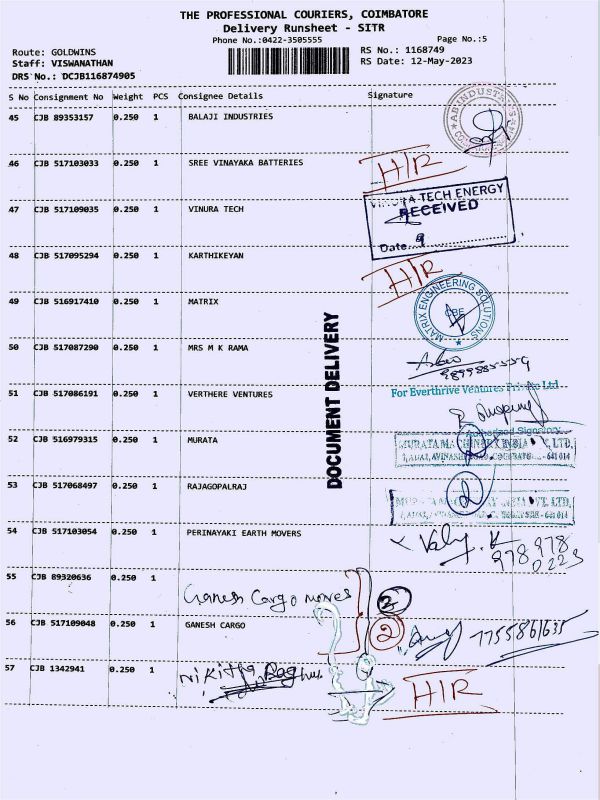 THE PROFESSIONAL COURIERS, COIMBATORE
Delivery Runsheet - SITR
Phone No.:0422-3505555
Page No.:5
Route: GOLDWINS
RS No.: 1168749
Staff: VISWANATHAN
RS Date: 12-May-2023
DRS No.: DCJB116874905
S No Consignment No Weight PCS Consignee Details Signature
45 CJB 89353157 0.250 1 BALAJI INDUSTRIES
46 CJB 517103033 0.250 1 SREE VINAYAKA BATTERIES H/R
47 CJB 517109035 0.250 1 VINURA TECH
VINURA TECH ENERGY
RECEIVED
Date
48 CJB 517095294 0.250 1 KARTHIKEYAN H/R
49 CJB 516917410 0.250 1 MATRIX
MATRIX ENGINEERING SOLUTIONS
CBE
50 CJB 517087290 0.250 1 MRS M K RAMA
51 CJB 517086191 0.250 1 VERTHERE VENTURES
For Everthrive Ventures Private Ltd
Authorized Signatory
52 CJB 516979315 0.250 1 MURATA
MURATA MACHINERY INDIA PVT. LTD.
53 CJB 517068497 0.250 1 RAJAGOPALRAJ
DOCUMENT DELIVERY
54 CJB 517103054 0.250 1 PERINAYAKI EARTH MOVERS
978 978
0223
55 CJB 89320636 0.250 1
Ganesh Cargo moves
2
56 CJB 517109048 0.250 1 GANESH CARGO
2
7755861635
57 CJB 1342941 0.250 1
Nikitha
H/R